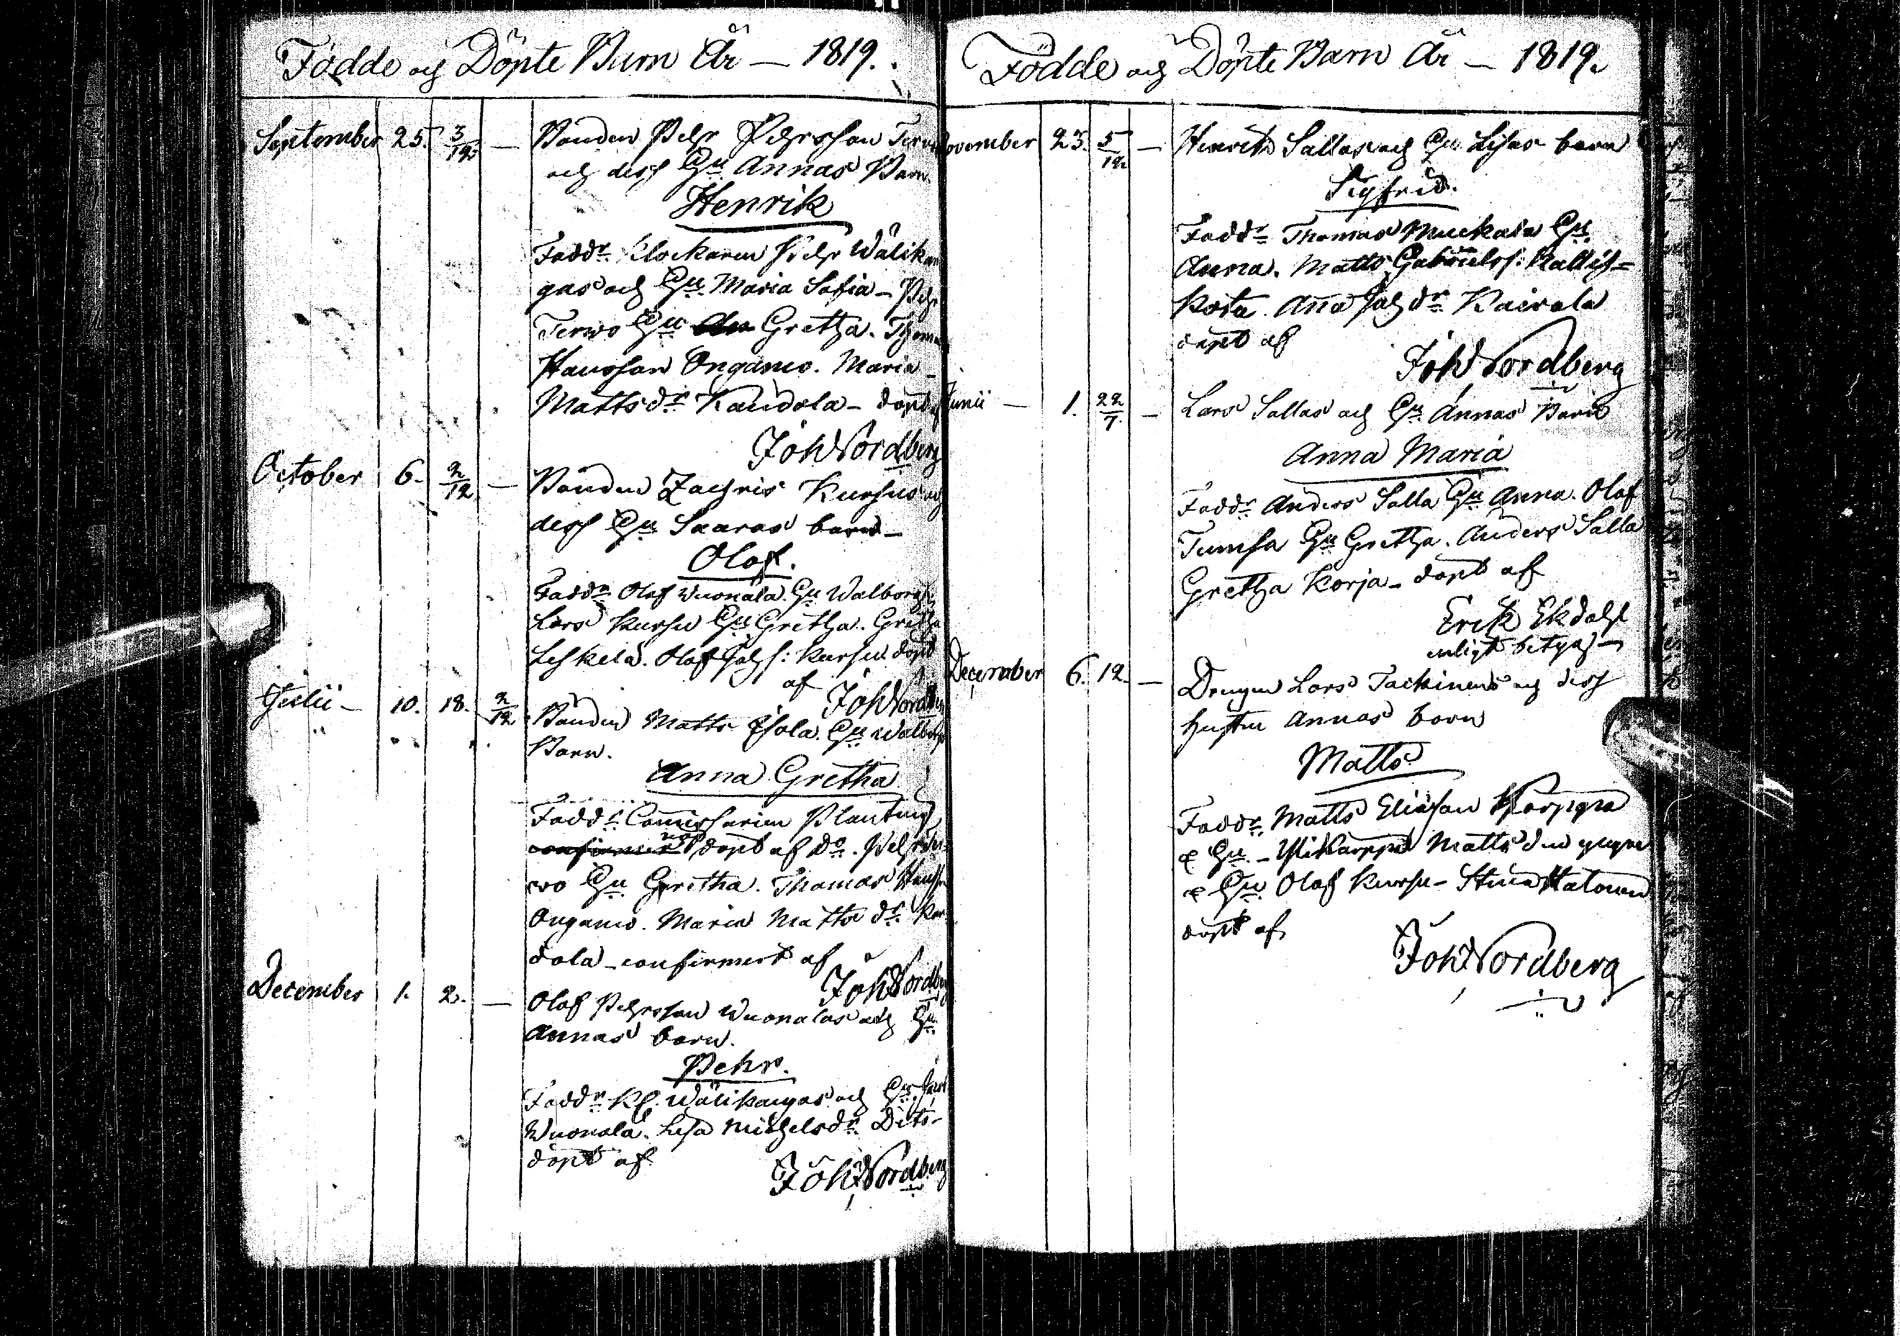 Födde och Döpte Barn År — 1819.
September 25. 3/12. — Bonden Pehr Pehrsson
och dess Hu Annas Barn
Henrik
Faddr Klockaren Pehr Wälikan
gas och Hu Maria Sofia — Pehr
Terwo Hu Gretha. Thomas
Hansson Ongamo. Maria
Matts dr Kandola — döpt af
Joh Nordberg
October 6. 2/12 — Bonden Zachris Kursus och
dess Hu Saaras barn —
Olof.
Faddr Olof Wuonala. Hu Walborg
Lars Kursu Hu Gretha. Gretha
Leskelä. Olof Joh s: Kursu döpt
af Joh Nordberg
Julii — 10. 18. 2/12 Bonden Matts Hu Walborgs
Barn.
Anna Gretha
Faddr Comissarien Planting
döpt af Do. Pehr Ter
wo Hu Gretha. Thomas Hanss
Ongamo. Maria Matts dr. Kan
dola — confirmert af
Joh Nordberg
December 1. 2. — Olof Pehrsson Wuonalas och Hu
Annas barn.
Pehr.
Faddr Kl. Wälikangas och Hu
Wuonala. Lisa Michelsdr. Dito —
döpt af
Joh Nordberg
Födde och Döpte Barn År — 1819.
November 23. 5/12 — Henrik Sallas och Hu Lisas barn
Sigfrid.
Faddr Thomas Muckala Hu
Anna. Matts Gabrielss: Kallis=
kota. Ana Joh dr Kairala
döpt af
Joh Nordberg
Junii — 1. 22/7 — Lars Sallas och Hu Annas Barn
Anna Maria
Faddr Anders Salla Hu Anna. Olof
Tumsa Hu Gretha. Anders Salla
Gretha Korja — döpt af
Erik Ekdahl
enligt betyg —
December 6. 12. — Drengen Lars Tackinens och dess
hustru Annas barn
Matts
Faddr Matts Eliasson Karppa
& Hu — Matts den yngre
& Hu Olof Kursu — Stina
döpt af
Joh Nordberg